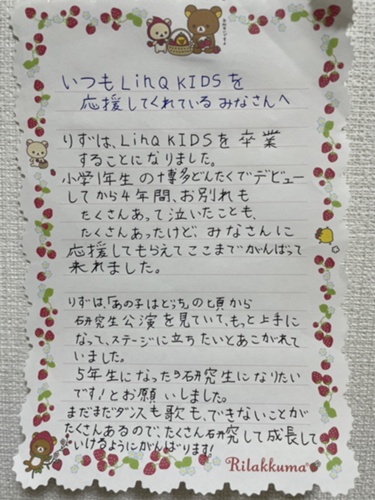 いつもLinQ KIDSを
応援してくれているみなさんへ
りずは、LinQ KIDSを卒業
することになりました。
小学1年生の博多どんたくでデビュー
してから4年間、お別れも
たくさんあって泣いたことも、
たくさんあったけど、みなさんに
応援してもらえてここまでがんばって
来れました。
りずは、「あの子はとっち」の頃から
研究生公演を見ていて、もっと上手に
なって、ステージに立ちたいとあこがれて
いました。
5年生になったら研究生になりたい
です!とお願いしました。
まだまだダンスも歌も、できないことが
たくさんあるので、たくさん研究して成長して
いけるようにがんばります!
Rilakkuma